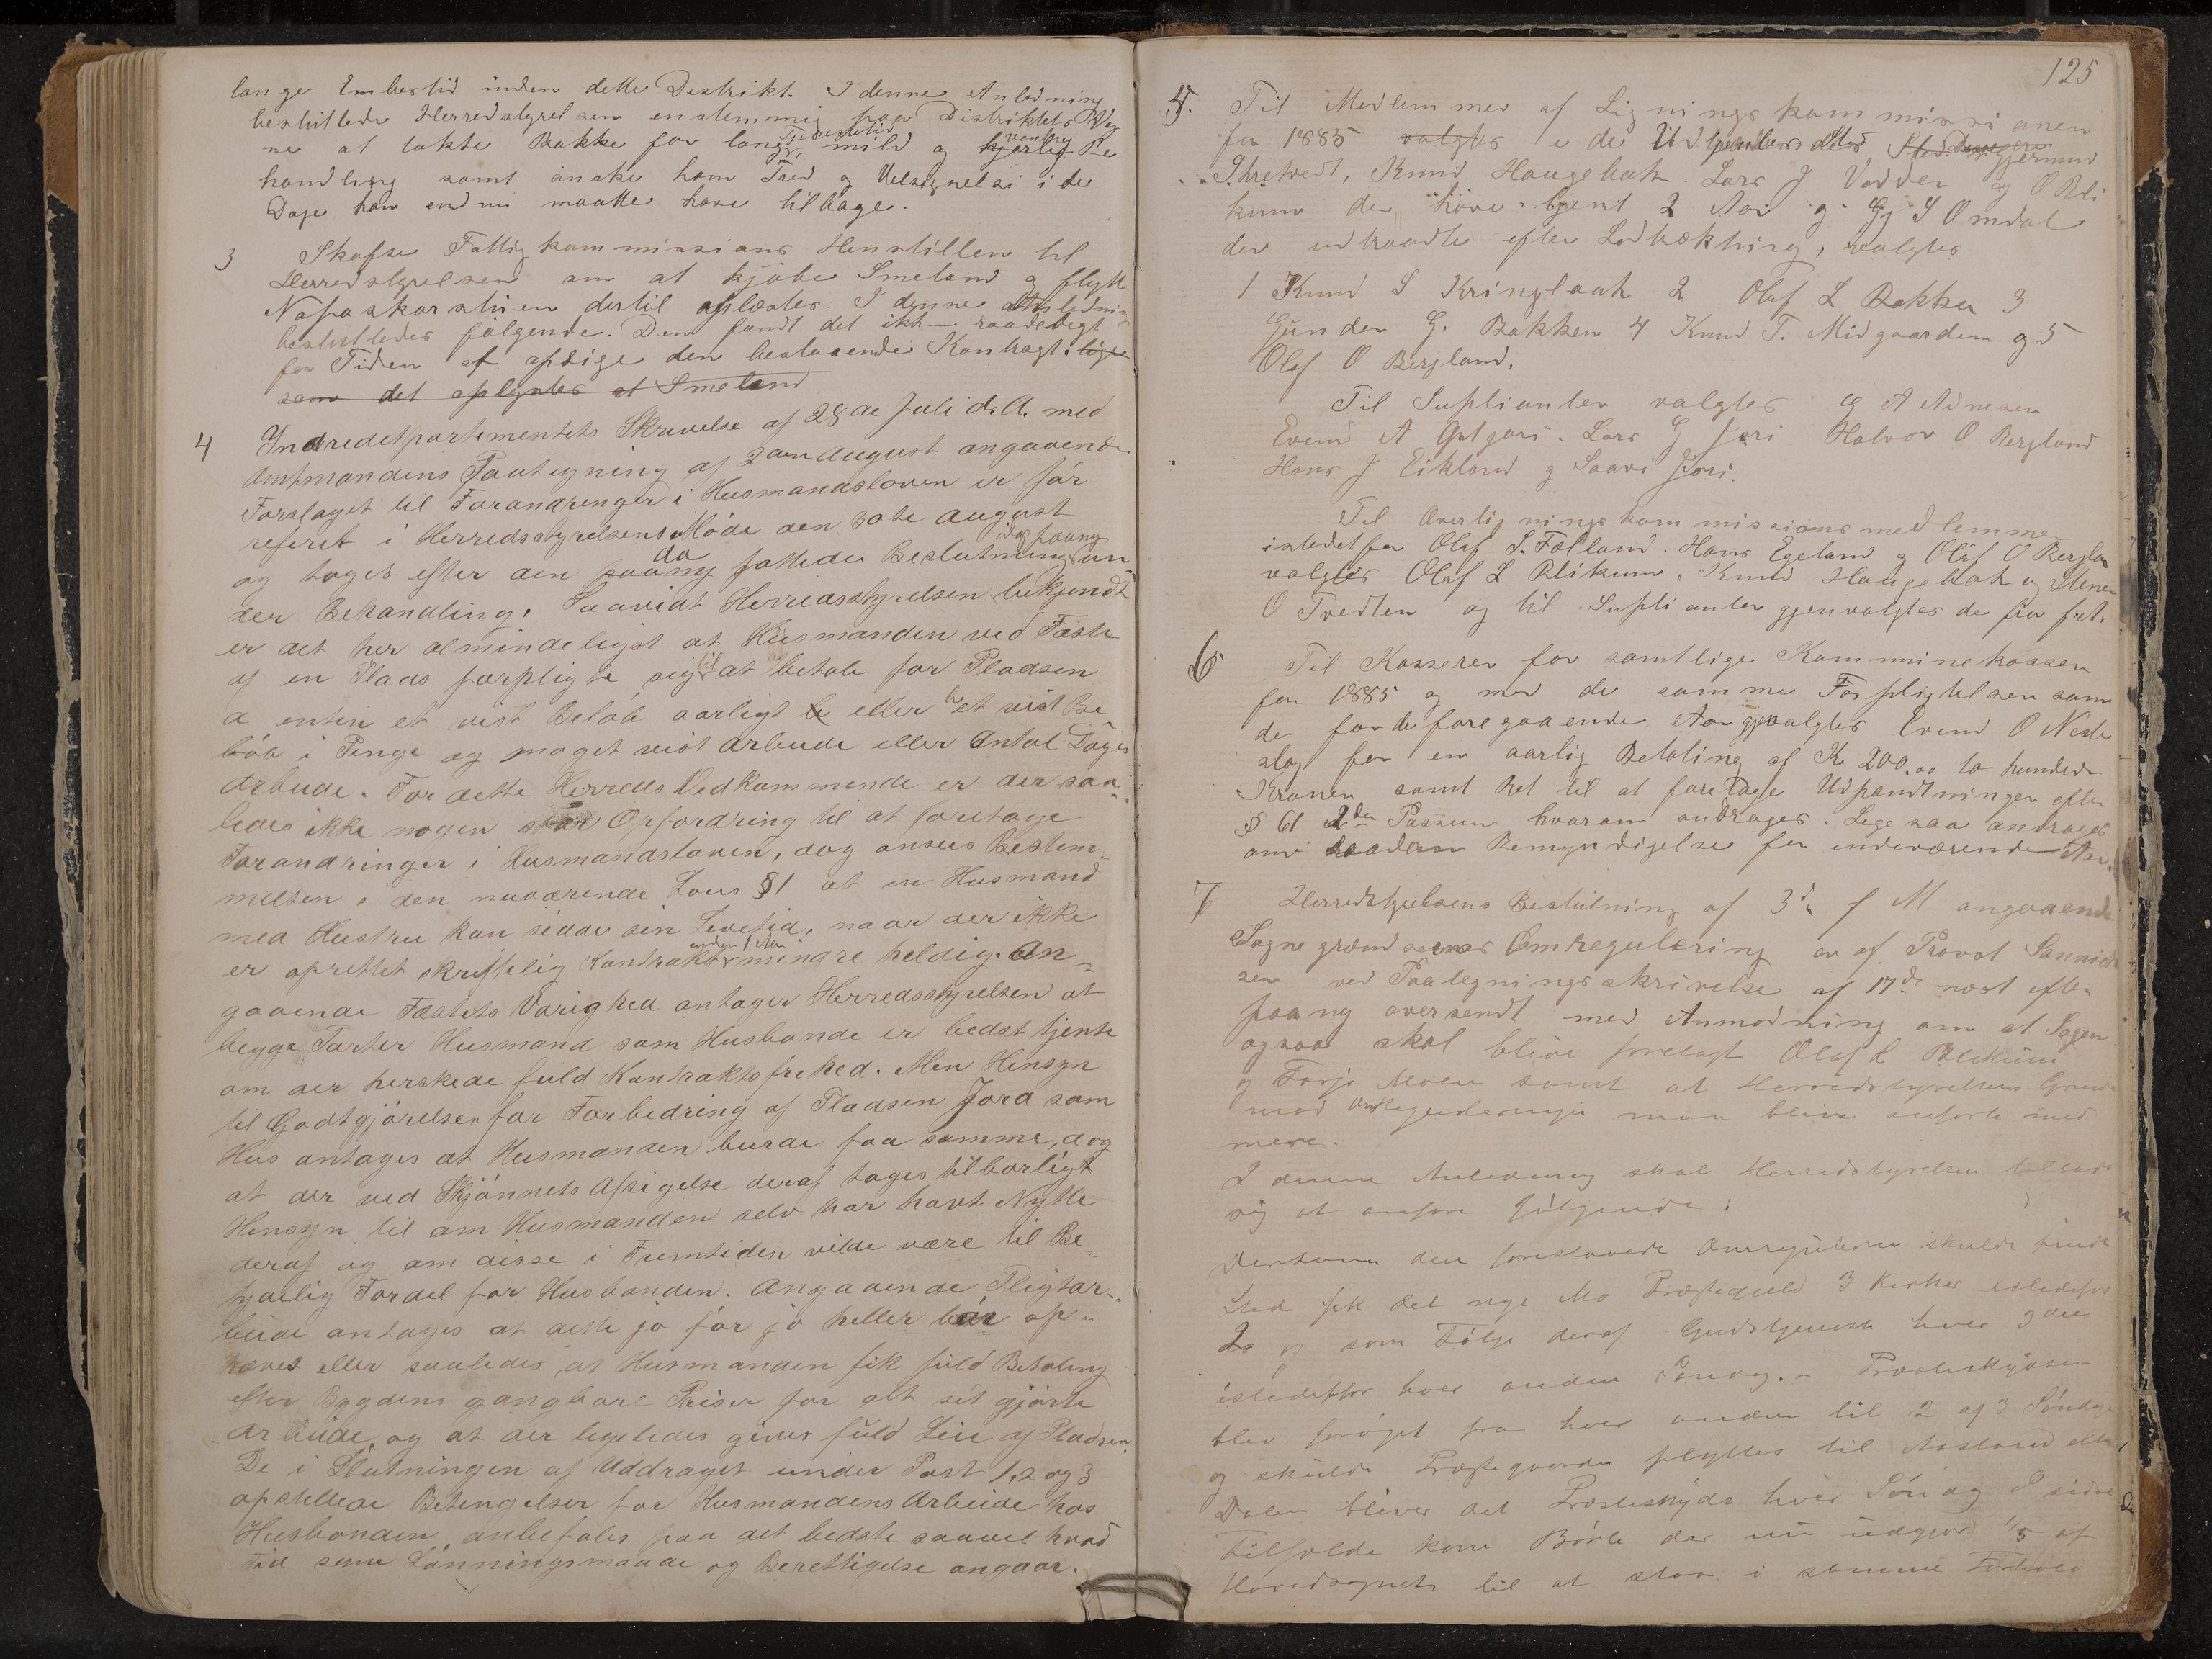 lange Embestid inden dette Destrikt. I denne Anledning
besluttede Herredstyrelsen enstemmig paa Distriktets Veg
ne at takke Bakke for lang Tjenestetid, mild og kjerlig venlig Be
handling samt ønske ham Fred og Velsignelse i de
Dage han endnu maatte have tilbage.
3 Skafse Fattigkommissions Henstillen til
Herredstyrelsen om at kjøbe Smeland og flytte
dertil oplæstes. I denne Anledning
besluttedes følgende. Den fandt det ikke raadeligt
for Tiden at opsige den bestaaende Kontragt. lige
som det oplystes at Smeland
4 Indredepartementets Skrivelse af 28de Juli d.A. med
Amtmandens Paategning af 2den August angaaende
Forslaget til Forandringer i Husmandsloven er før
referet i Herredsstyrelsens Møde den 30te August
og toges efter den da fattede Beslutning idag paany un-
der Behandling. Saavidt Herredsstyrelsen bekjendt
er det her almindeligst at Husmanden ved Fæste
af en Plads forpligte sig til at betale for Pladsen
a enten et vist Beløb aarligt eller b et vist Be
løb i Penge og noget vist Arbeide eller Antal Dages
Arbeide. For dette Herreds Vedkommende er der saa-
ledes ikke nogen stor Opfordring til at foretage
Forandringer i Husmandsloven, dog ansees Bestem-
melsen i den nuværende Lovs §1 at en Husmand
med Hustru kan sidde sin Levetid, naar der ikke
er oprettet skriftelig Kontrakt inden 1 Aar mindre heldig. An-
gaaende Fæstets Varighed antager Herredsstyrelsen at
begge Parter Husmand som Husbonde er bedst tjente
om der herskede fuld Kontraktsfrihed. Men Hensyn
til Godtgjørelsen for Forbedring af Pladsen Jord som
Hus antages at Husmanden burde faa samme, dog
at der ved Skjønnets Afsigelse deraf tages tilbørligt
Hensyn til om Husmanden selv har havt Nytte
deraf og om disse i Fremtiden vilde være til Be-
tydelig Fordel for Husbonden. Angaaende Pligtar-
beide antages at dette jo før jo heller bør op-
hæves eller saaledes at Husmanden fik fuld Betaling
efter Bygdens gangbare Priser for alt sit gjorte
Arbeide, og at der ligeledes gives fuld Leie af Pladsen.
De i Slutningen af Uddraget under Post 1, 2 og 3
opstillede Betingelser for Husmandens Arbeide hos
Husbonden anbefales paa det bedste saavel hvad
Tid som Lønningsmaade og Berettigelse angaar.
125
5. Til Medlemmer af Ligningskommissionen
for 1885 valgtes i de Udtrædendes Sted Gjermund
Skretvedt, Knud Haugebak. Lars J Vadder og O Bli
kum der have tjent 2 Aar og Gj S Omdal
der udtraadte efter Lodtrækning, valgtes
1 Knud S Kringlaak 2 Olaf L Bakken 3
Gunder G. Bakken 4 Knud T. Midgaarden og 5
Olaf O Bergland.
Til Suplianter valgtes G A Aamesen
Evend A Ostjori. Lars G Jori Halvor O Bergland
Hans J Eikland og Saavi Jori.
Til Overligningskommissionsmedlemmer
istedetfor Olaf S. Falland. Hans Egeland og Olaf O Berglan
valgtes Olaf L Blikum. Knud Haugebak og Stener
O Tvedten og til Suplianter gjenvalgtes de fra før.
6 Til Kasserer for samtlige Kommunekasser
for 1885 og med de samme Forpligtelser som
de for de foregaaende Aar gjenvalgtes Evend O Nesle
slag for en aarlig Betaling af Kr 200.00 to hundrede
Kroner samt Ret til at foretage Udpandtninger efter
§ 61 2den Passum hvorom andrages. Lige saa andrages
om saadan Bemyndigelse for indeværende Aar.
7 Herredstyrelsens Beslutning af 3de f M angaaende
Sognegrændsernes Omregulæring er af Provst Sannid
sen ved Paategningsskrivelse af 17de næst efter
paany oversendt med Anmodning om at Sagen
ogsaa skal blive forelagt Olaf L Blikum
og Torje Moen samt at Herredstyrelsens Grunde
mod Omreguleringen maa blive anførte med
mere.
I denne Anledning skal Herredstyrelsen tillade
sig at anføre Følgende:
Dersom den foreslaaede Omregulering skulde finde
Sted fik det nye Mo Præstegjeld 3 Kirker istedetfor
2 og som Følge deraf Gudstjeneste hver 3die
istedetfor hver anden Søndag. - Præsteskydsen
blev forøget fra hver anden til 2 af 3 Søndage
og skulde Præstegaarden flyttes til Aasland eller
Dalen bliver det Præsteskyds hver Søndag I sidste
Tilfælde kom Børte der nu udgjør 1/5 af
Hovedsognet til at staa i samme Forhold